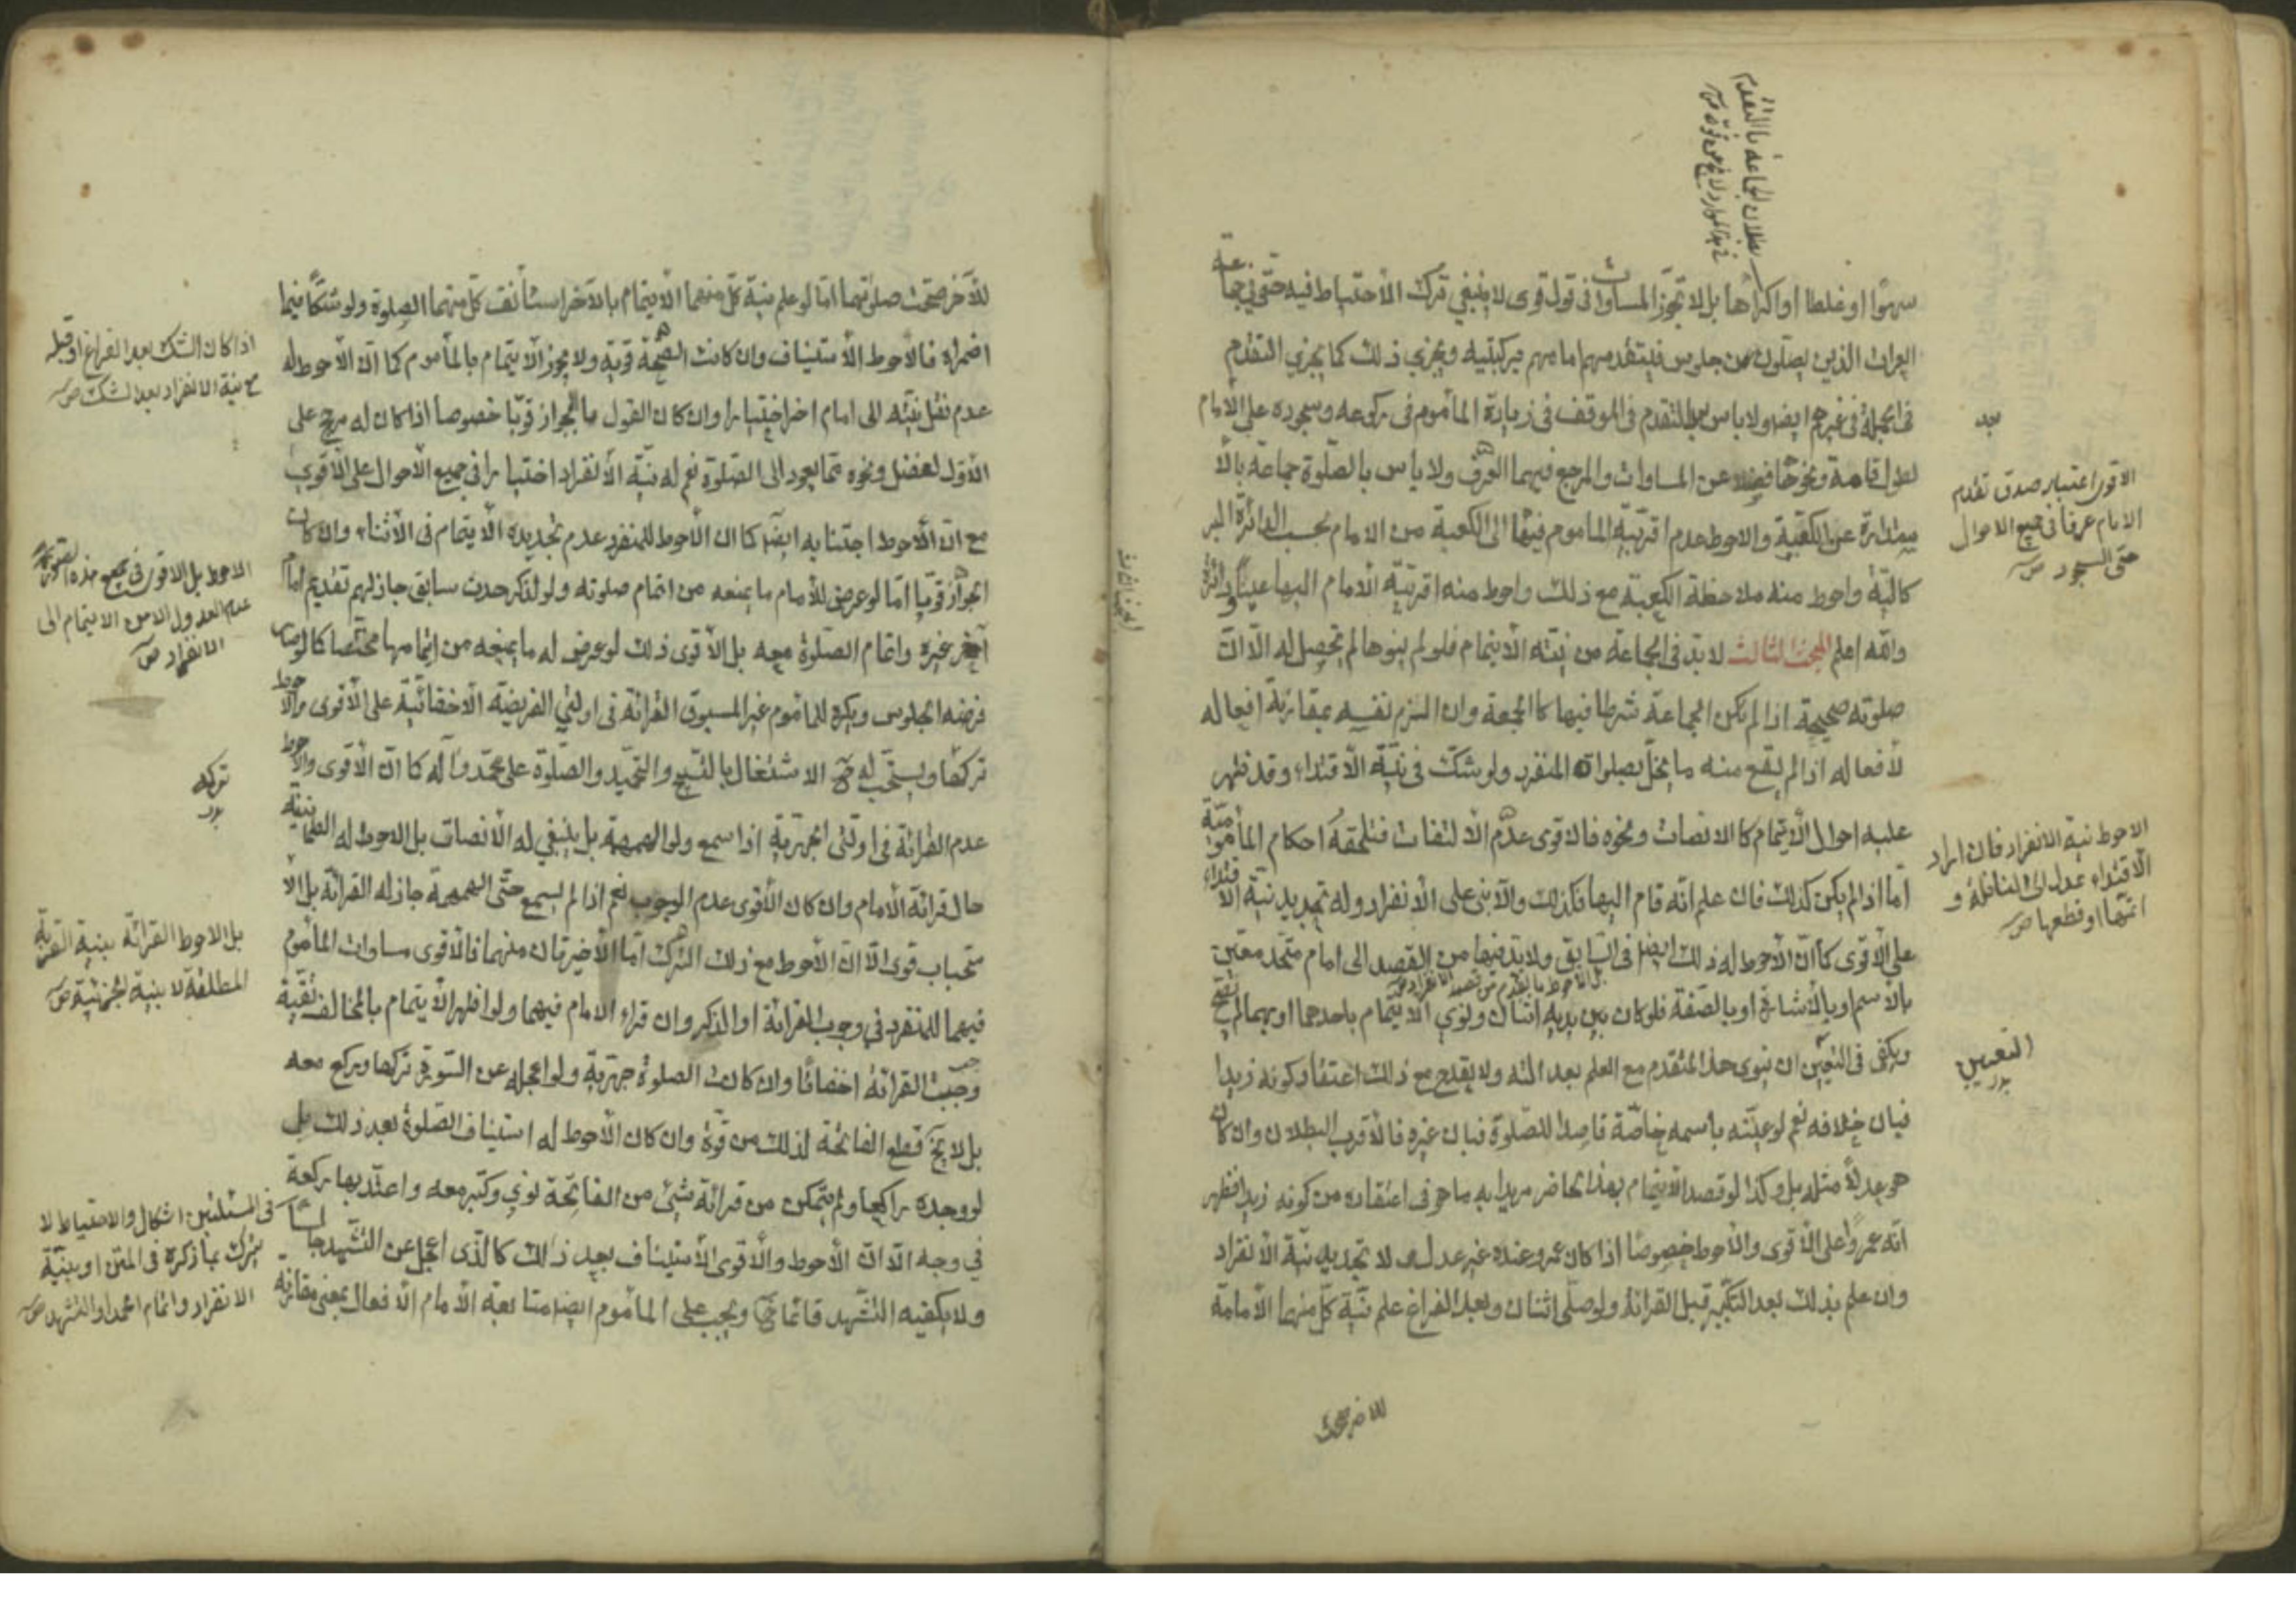 سهوًا او غلطا او اكراها بل لا تجوز المساوات فى قول قوى لا ينبغي ترك الاحتياط فيه حتّى في جماعة
العراة الذين يصلّون من جلوس فيتقدمهم امامهم بركبتيه ويجزي ذلك كما يجزي التقدم
فى الجملة فى غيرهم ايضا ولا باس بعد التقدم فى الموقف فى زيادة المأموم فى ركوعه وسجوده على الامام
لطول قامة ونحوها فضلا عن المساوات والمرجع فيهما العرف ولا باس بالصلوة جماعة بالا
ستدارة على الكعبة والاحوط عدم اقربيّة الماموم فيها الى الكعبة من الامام بحسب الدائرة البر
كاليّة واحوط منه ملاحظة الكعبة مع ذلك واحوط منه اقربيّة الامام اليها عينًا ودائرة
والله اعلم المبحث الثالث لا بد فى الجماعة من نيّته الايتمام فلو لم ينوها لم تحصل له الّا انّ
صلوته صحيحة اذا لم يكن الجماعة شرطا فيها كالجمعة وان التزم نفسه بمقارنة افعاله
لافعاله اذا لم يقع منه ما يخلّ بصلوات المنفرد ولو شكّ فى نيّة الاقتداء وقد ظهر
عليه احوال الايتمام كالانصات ونحوه فالاقوى عدم الالتفات فتلحقه احكام المأموميّة
أمّا اذا لم يكن كذلك فان علم انّه قام اليها فكذلك والّا بنى على الانفراد وله تجديد نيّة الاقتداء
على الاقوى كما انّ الاحوط له ذلك ايضا فى السابق ولا بدّ فيها من القصد الى امام متّحد معيّن
بالاسم او بالاشارة او بالصّفة فلو كان بين يديه اثنان ونوى الايتمام باحدهما او بهما لم تصح
ويكفى فى التعيين ان ينوى هذا المتقدم مع العلم بعدالته ولا يقدح مع ذلك اعتقاد كونه زيدا
فبان خلافه نعم لو عيّنه باسمه خاصّة قاصدا للصّلوة فبان غيره فالاقرب البطلان وان كان
هو عدلا مثله بل وكذا لو قصد الايتمام بهذا الحاضر مريدا به ما هو فى اعتقاده من كونه زيدا فظهر
انّه عمرو على الاقوى والاحوط خصوصًا اذا كان عمرو عنده غير عدل لا تجديد نيّة الانفراد
وان علم بذلك بعد التكبير قبل القرائة ولو صلّى اثنان وبعد الفراغ علم نيّة كلّ منهما الامامة
للاخر صحّت
بعد
الاقوى اعتبار صدق تقدم
الامام عرفا فى جميع الاحوال
حتى السجود
الاحوط نية الانفراد فان اراد
الاقتداء عدل الى النافلة و
اتمّها او قطعها
التعيين
بدر
بل الاحوط ما تقدم من قصد الانفراد
بطلان الجماعة بالتقدم
للآخر صحّت صلوتهما امّا لو علم نيّة كلّ منهما الايتمام بالآخر استأنف كلّ منهما الصلوة ولو شكّا فيما
اضمراه فالاحوط الاستيناف وان كانت الصّحّة قويّة ولا يجوز الايتمام بالمأموم كما انّ الاحوط له
عدم نقل نيّته الى امام اخر اختيارا وان كان القول بالجواز قويّا خصوصا اذا كان له مرجّح على
الاوّل لفضل ونحوه ممّا يعود الى الصّلوة نعم له نيّة الانفراد اختيارا فى جميع الاحوال على الاقوى
مع انّ الاحوط اجتنابه ايضًا كما انّ الاحوط للمنفرد عدم تجديده الايتمام فى الأثناء وان كان
الجواز قويّا امّا لو عرض للامام ما يمنعه من اتمام صلوته ولو لتذكّر حدث سابق جاز لهم تقديم امام
آخر غيره واتمام الصّلوة معه بل الاقوى ذلك لو عرض له ما يمنعه من اتمامها مختصا كما لو صار
فرضه الجلوس ويكره للماموم غير المسبوق القرائة فى اولتي الفريضة الاخفاتيّة على الاقوى والاحوط
تركها ويستحب له الاشتغال بالتسبيح والتحميد والصّلوة على محمّد وآله كما انّ الاقوى والاحوط
عدم القرائة فى اولتى الجهريّة اذا سمع ولو الهمهمة بل ينبغي له الانصات بل الاحوط له الطمانينة
حال قرائة الامام وان كان الاقوى عدم الوجوب نعم اذا لم يسمع حتّى الهمهمة جاز له القرائة بل الا
ستحباب قوى الّا انّ الاحوط مع ذلك الترك امّا الاخيرتان منهما فالاقوى مساوات المأموم
فيهما للمنفرد في وجوب القرائة او الذكر وان قراء الامام فيهما ولو اظهر الايتمام بالمخالف تقيّة
وجبت القرائة اخفاتا وان كانت الصلوة جهريّة ولو اعجله عن السّورة تركها وركع معه
بل لا يخ قطع الفاتحة لذلك من قوّة وان كان الاحوط له استيناف الصّلوة بعد ذلك بل
لو وجده راكعا ولم يتمكن من قرائة شيئ من الفاتحة نوى وكبّر معه واعتدّ بها ركعة
في وجه الّا انّ الاحوط والاقوى الاستيناف بعد ذلك كالّذى اعجل عن التشهد جالسا
ولا يكفيه التشهد قائما ويجب على المأموم ايضا متابعة الامام الافعال بمعنى مقارنة
اذا كان الشك بعد الفراغ او قبله
مع نية الانفراد بعد الشك
الاحوط بل الاقوى فى جميع هذه الصور
عدم العدول الا من الايتمام الى
الانفراد
تركه
بدر
بل الاحوط القرائة بنية القربة
المطلقة لا بنية الجزئية
فى المسئلتين اشكال والاحتياط لا
يترك بما ذكره فى المتن او بنيّة
الانفراد واتمام الحمد او التشهد